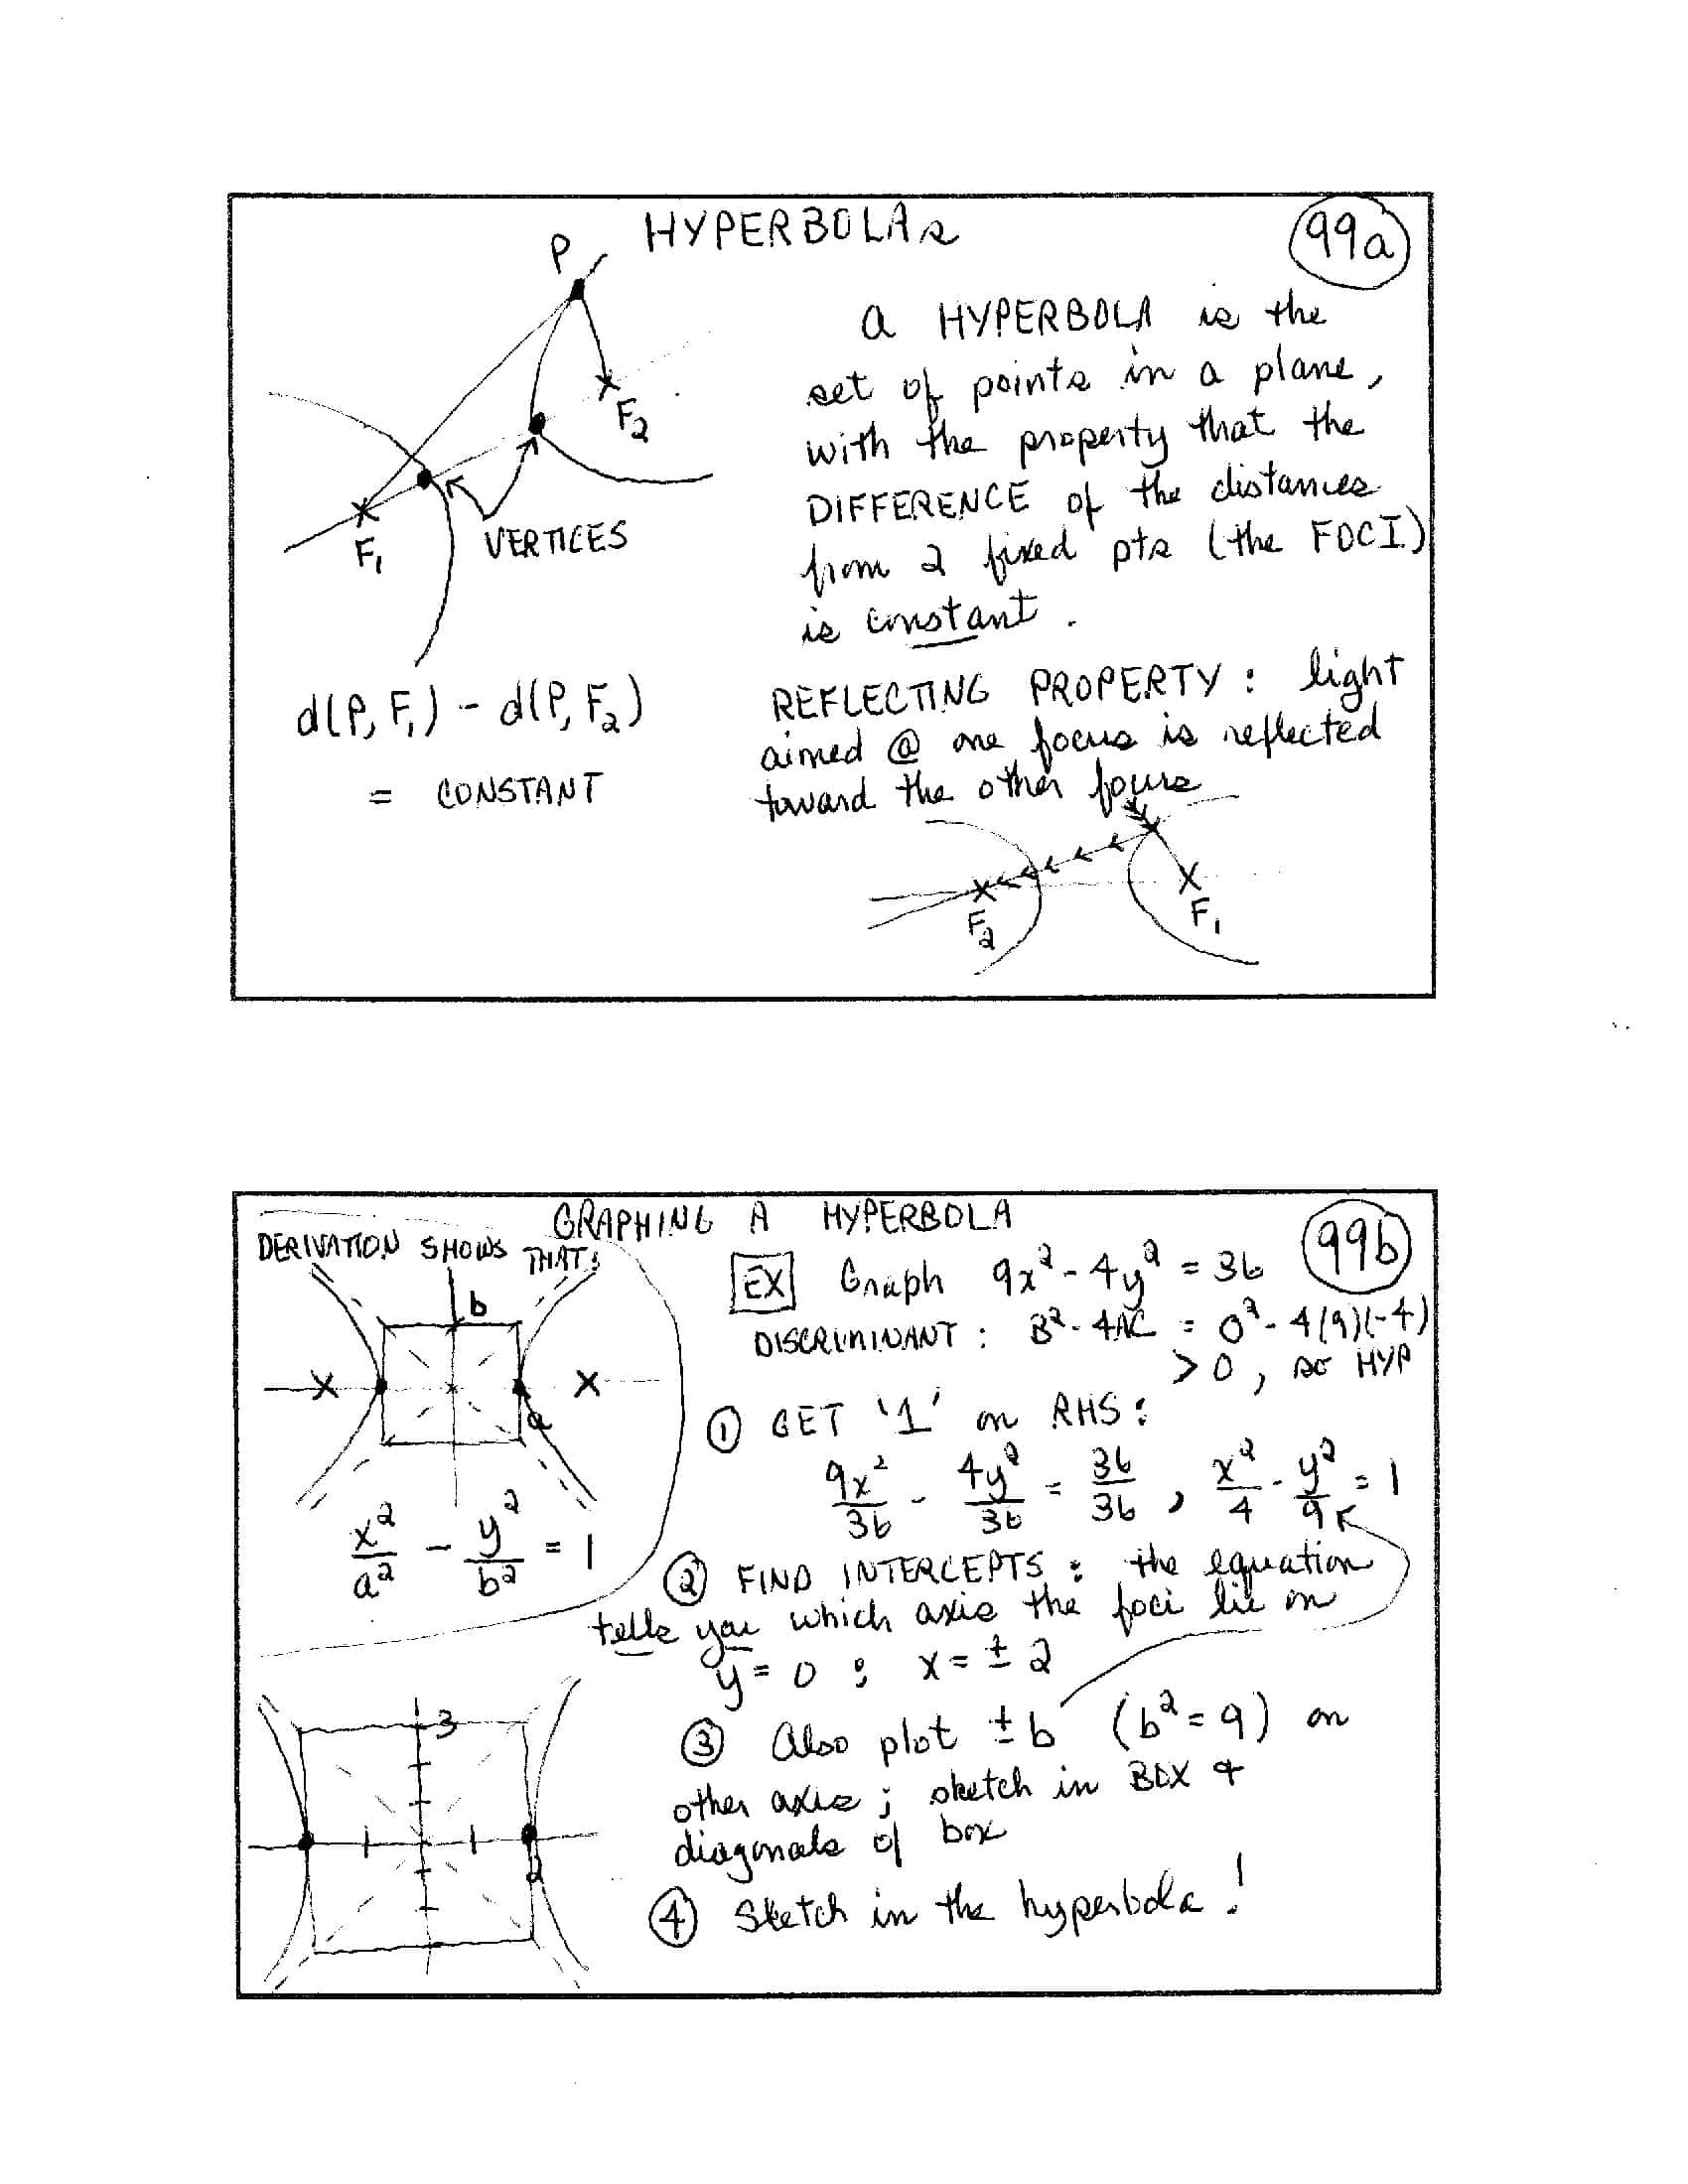 HYPERBOLAs
99a
P
F₂
F₁
VERTICES
d(P, F₁) - d(P, F₂)
= CONSTANT
a HYPERBOLA is the
set of points in a plane,
with the property that the
DIFFERENCE of the distances
from 2 fixed pts (the FOCI)
is constant.
REFLECTING PROPERTY: light
aimed @ one focus is reflected
toward the other focus
F₂
F₁
GRAPHING A HYPERBOLA
99b
DERIVATION SHOWS THAT:
b
a
x²/a² - y²/b² = 1
EX Graph 9x² - 4y² = 36
DISCRIMINANT: B² - 4AC = 0² - 4(9)(-4)
> 0, so HYP
① GET '1' on RHS:
9x²/36 - 4y²/36 = 36/36, x²/4 - y²/9 = 1
② FIND INTERCEPTS: the equation
tells you which axis the foci lie on
y = 0: x = ± 2
3
2
③ Also plot ±b (b² = 9) on
other axis; sketch in BOX &
diagonals of box
④ Sketch in the hyperbola!